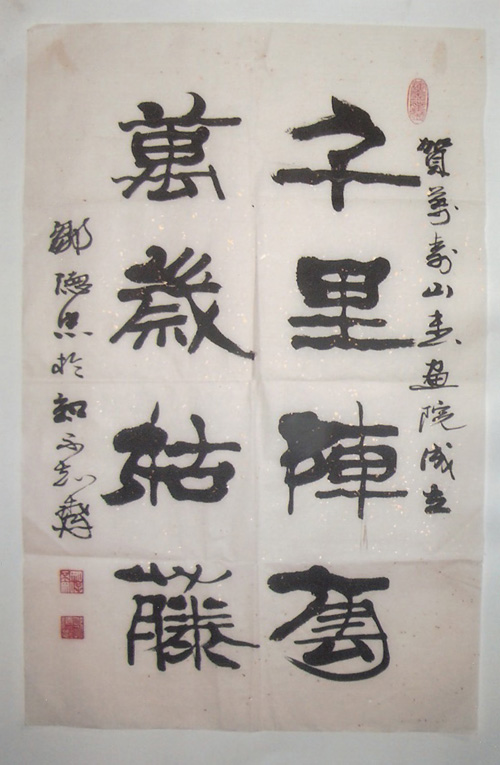 賀萬壽山書畫院成立
千里陣雲
萬歲枯藤
鄒德忠於知不知齋